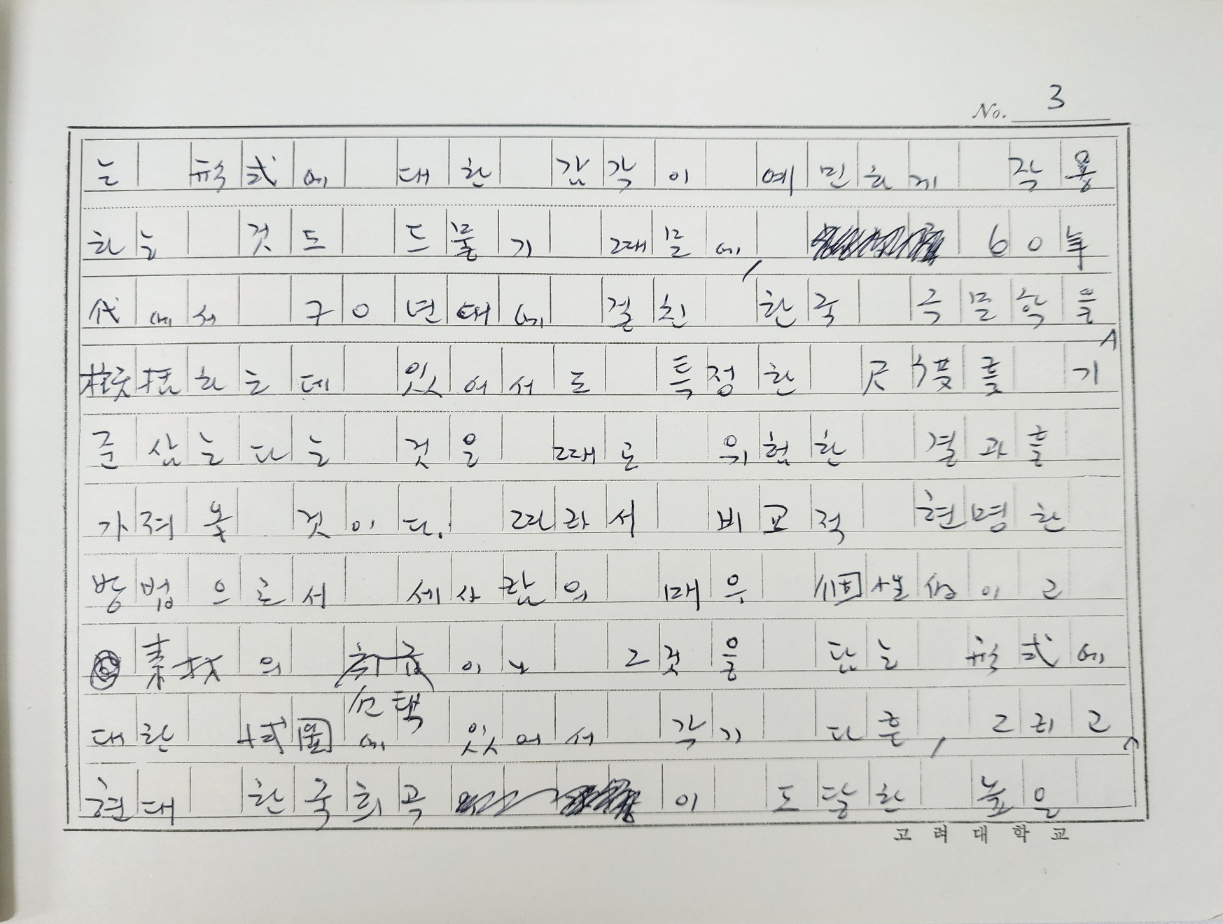 No. 3
는 形式에 대한 감각이 예민하게 작용
하는 것도 드물기 때문에, 60年
代에서 70년대에 걸친 한국 극문학을
하는데 있어서도 특정한 尺度를 기
준 삼는다는 것은 때로 위험한 결과를
가져올 것이다. 따라서 비교적 현명한
방법으로서 세사람의 매우 個性的이고
素材의 이나 그것을 담는 形式에
선택
대한 에 있어서 각기 다른, 그리고
현대 한국희곡 이 도달한 높은
고려대학교